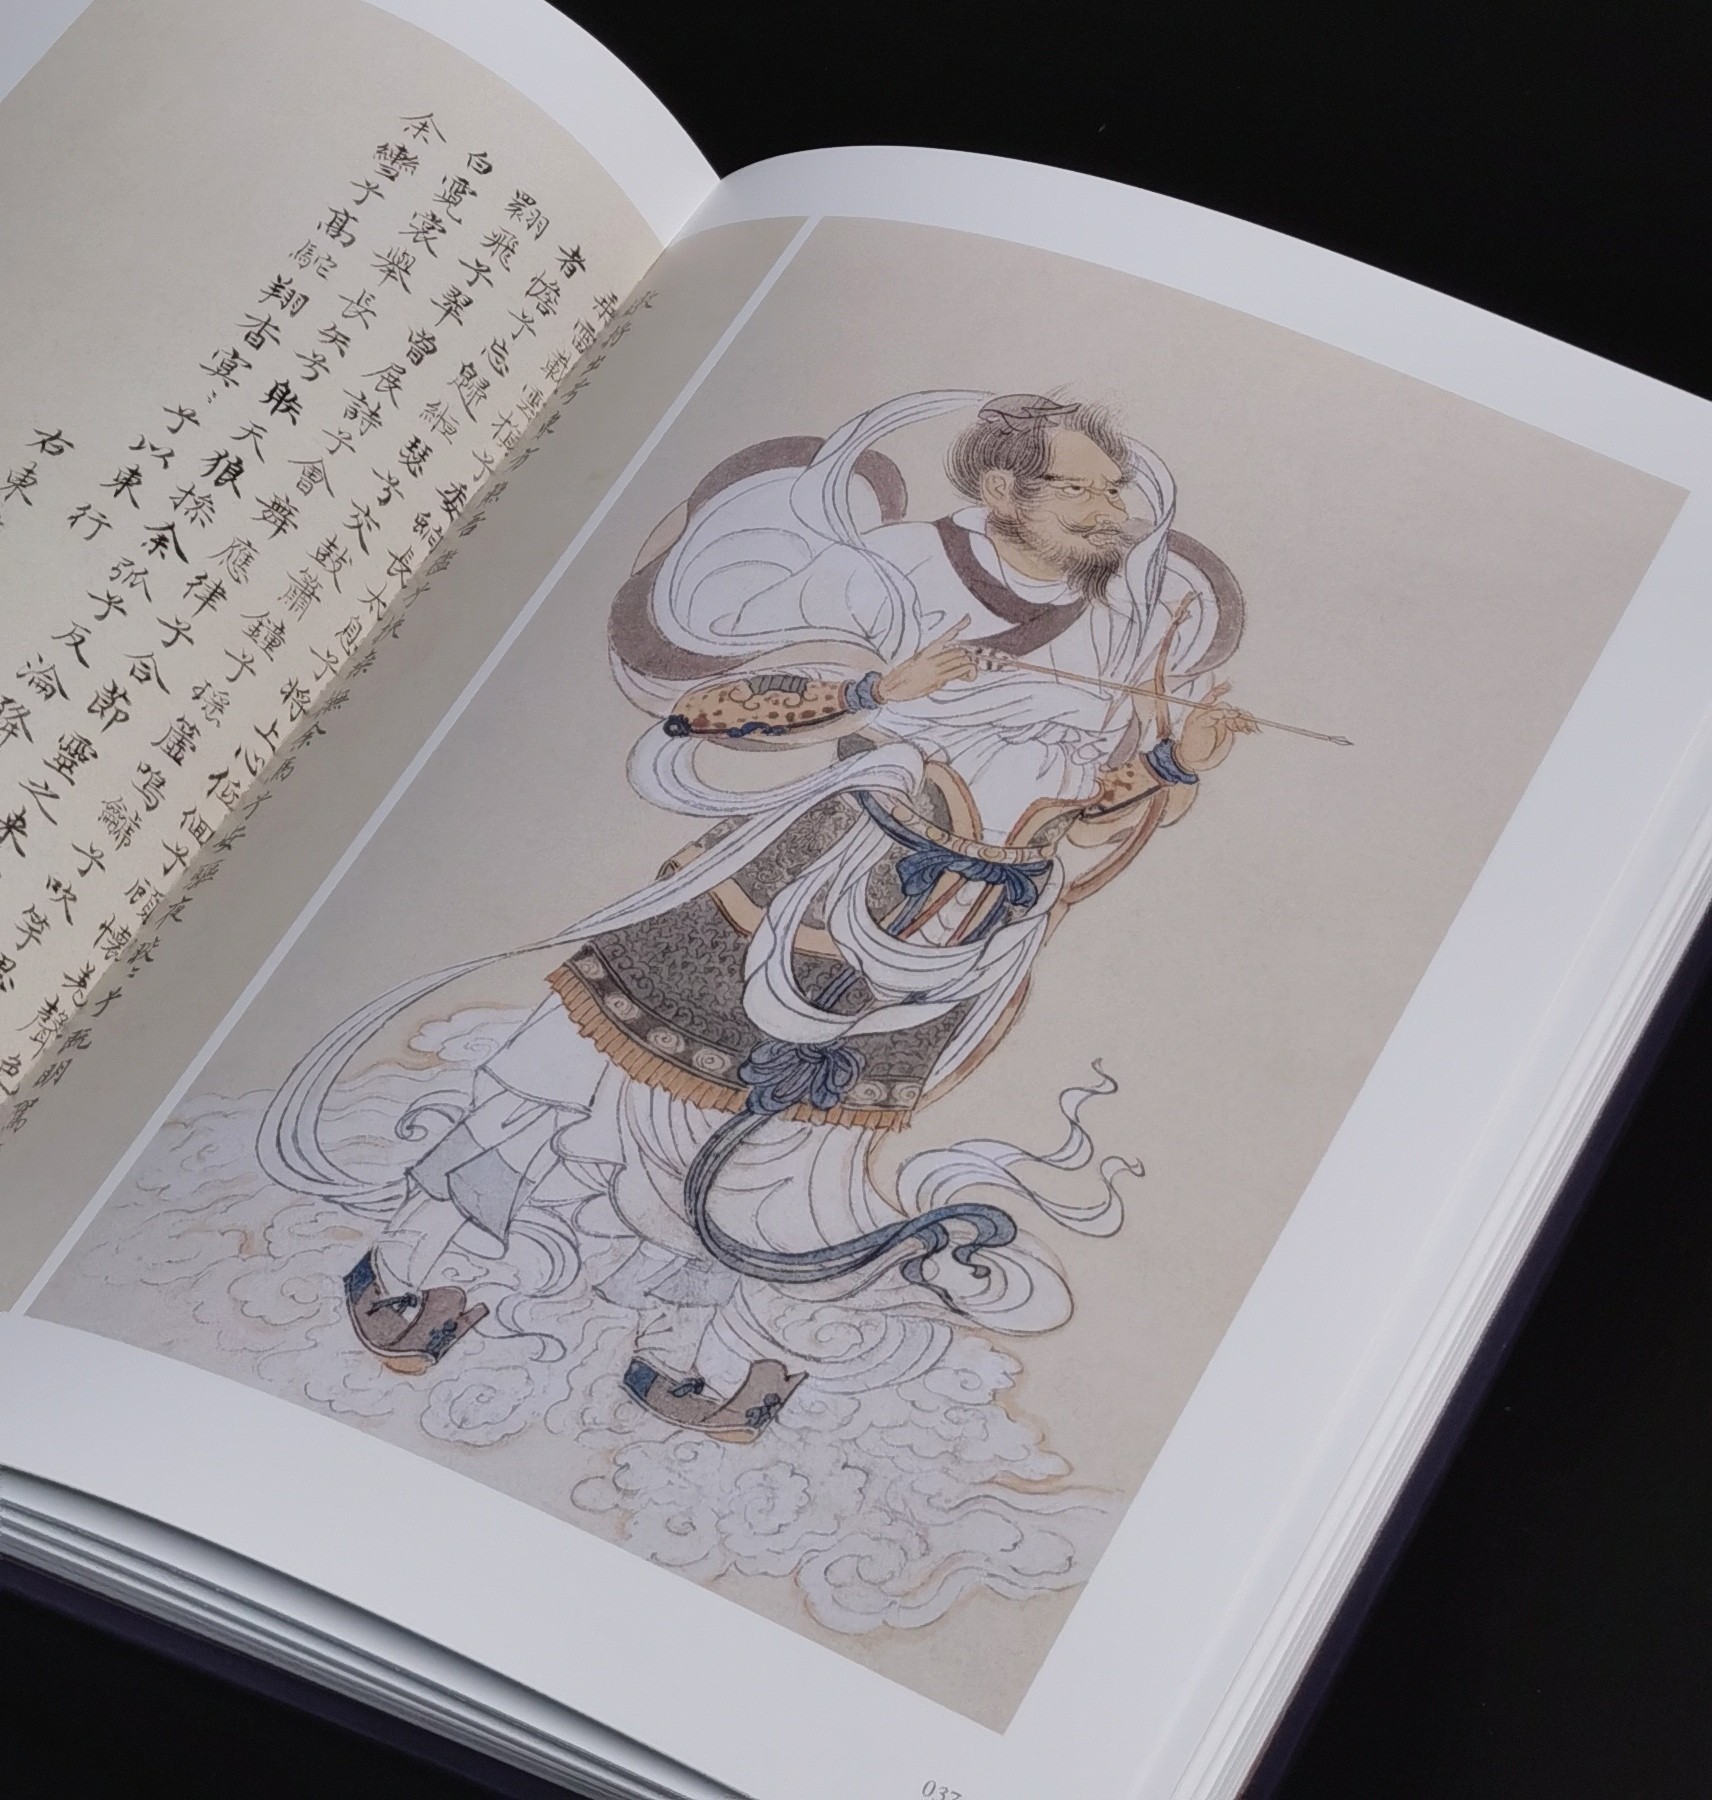 乘雷載雲旗兮委蛇長太息兮將上心低佪兮顧懷羌聲色
者憺兮忘歸緪瑟兮交鼓簫鐘兮瑤簴鳴兮吹竽思
翾飛兮翠曾展詩兮會舞應律兮合節靈之來
白霓裳舉長矢兮射天狼操余弧兮反淪降
余轡兮高駝翔杳冥〻兮以東行
右東
037